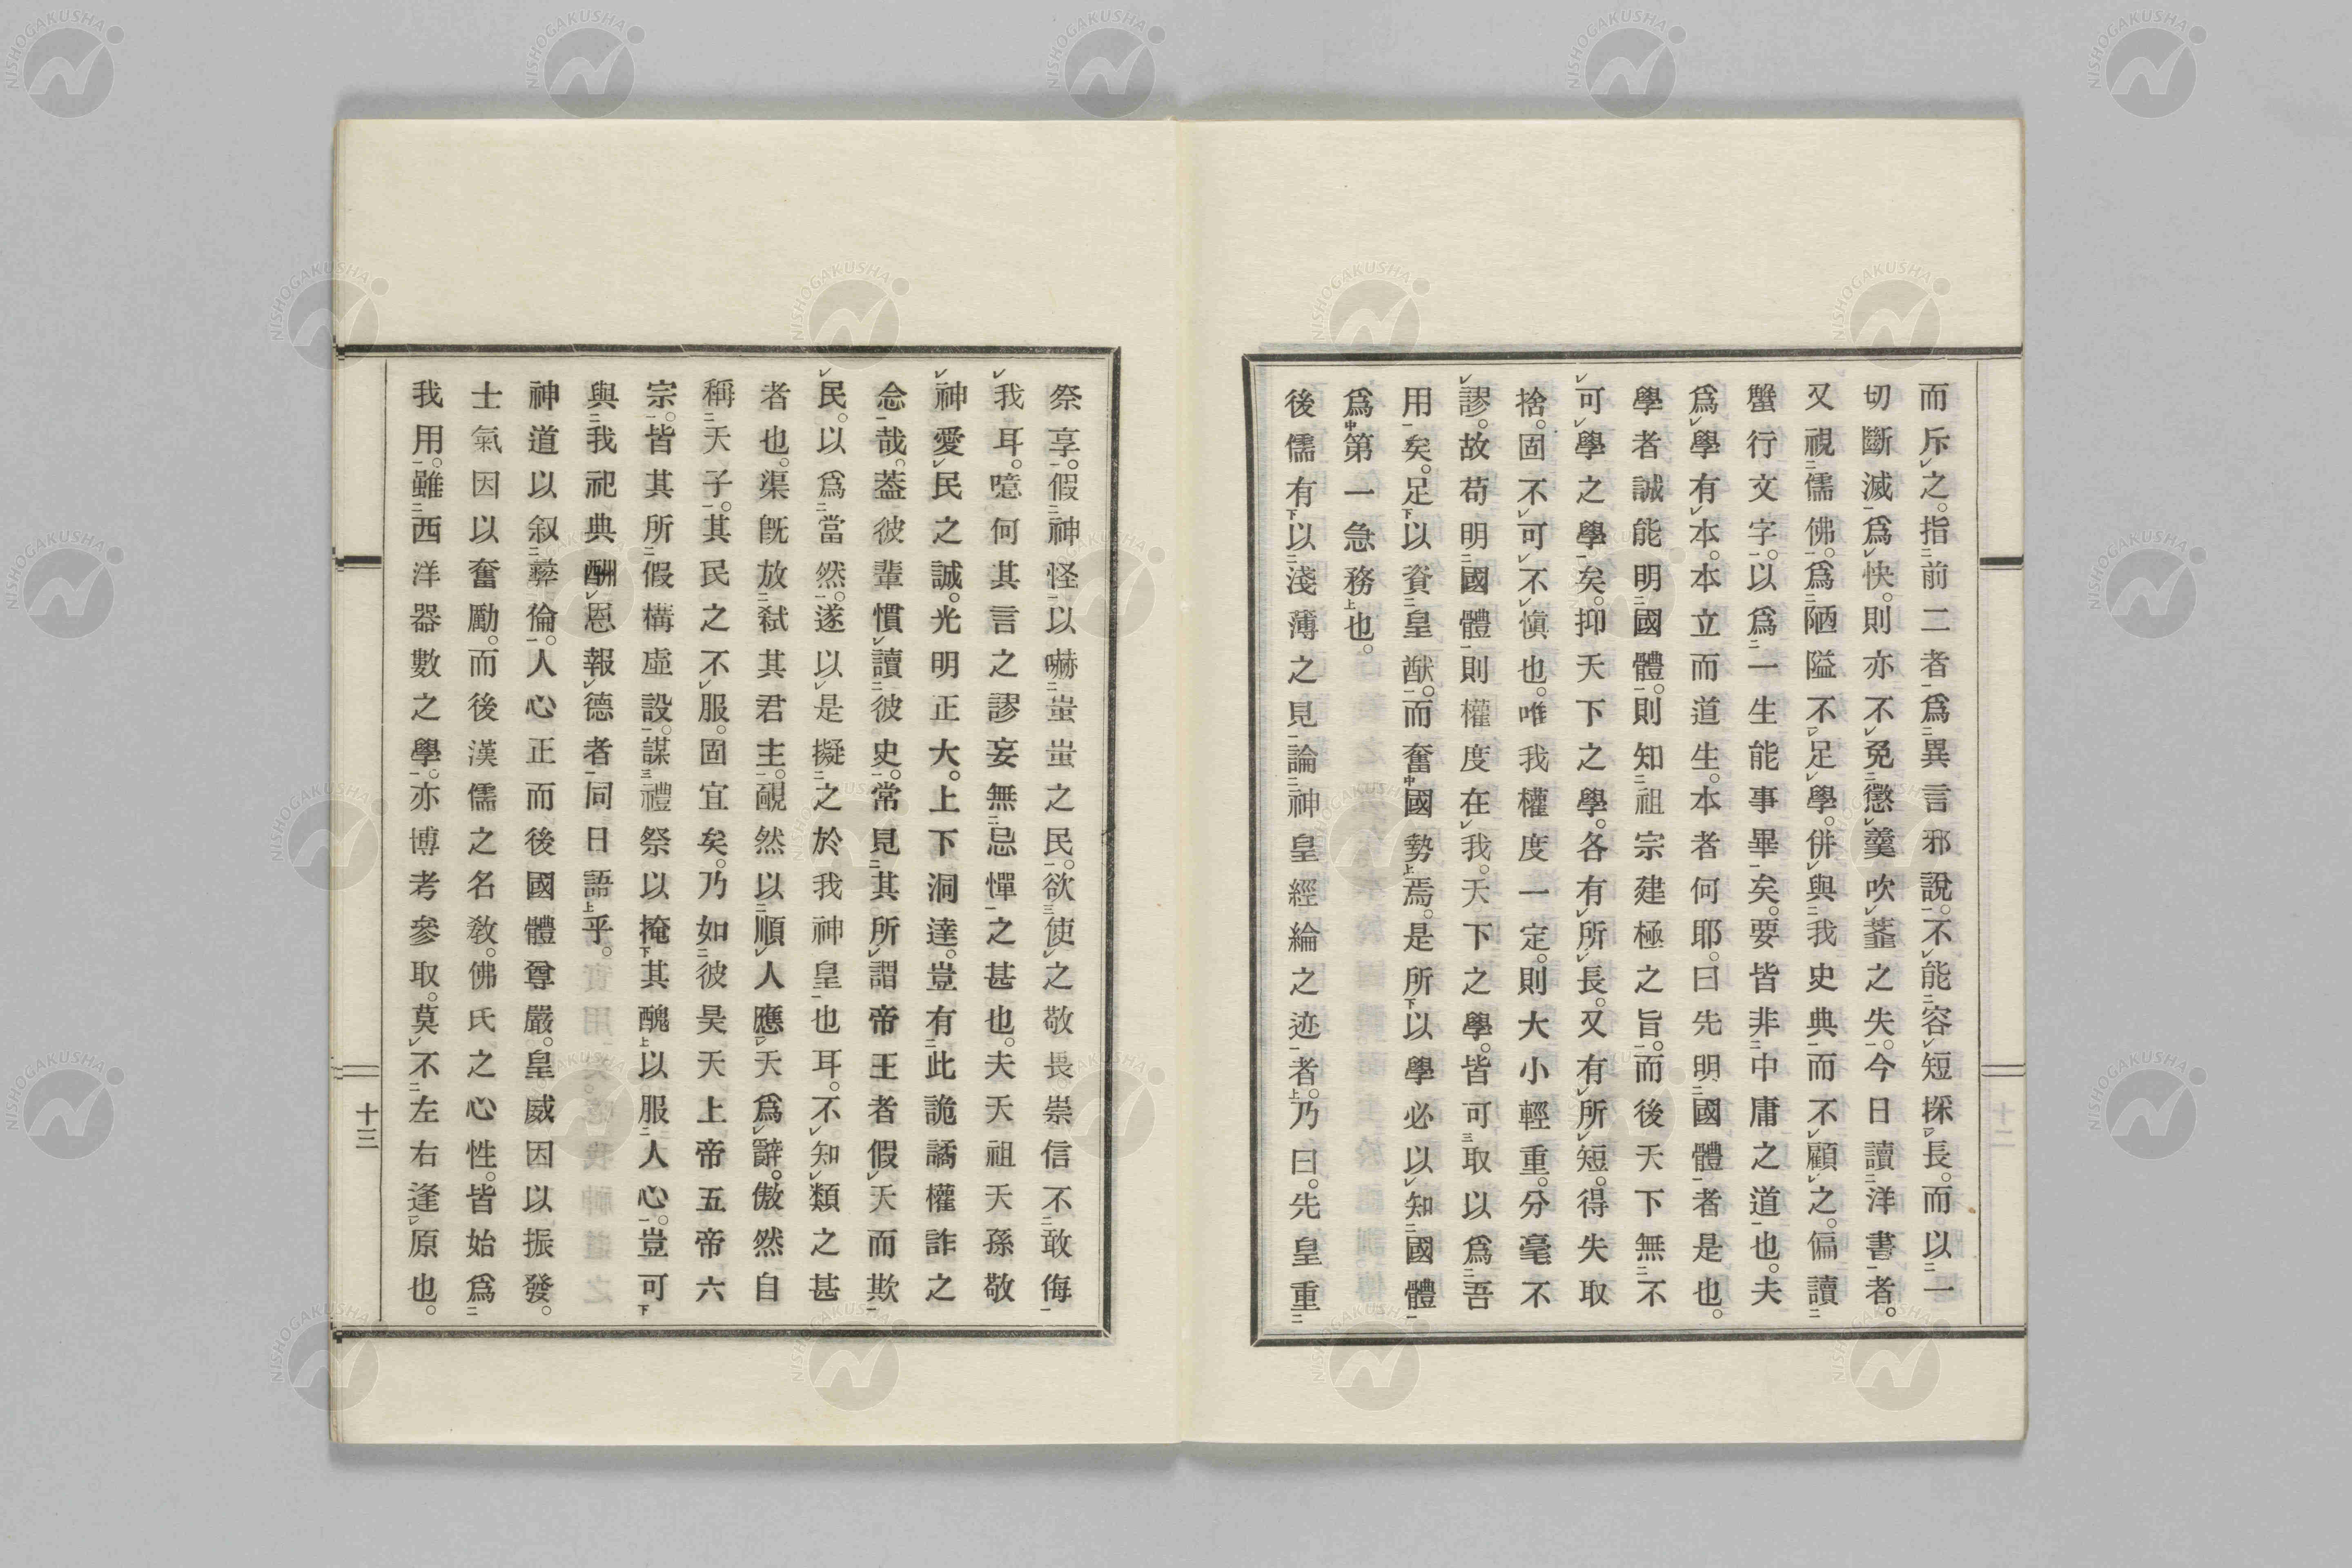 而斥之。指前二者爲異言邪說。不能容短採長。而以一
切斷滅爲快。則亦不免懲羹吹虀之失。今日讀洋書者。
又視儒佛。爲陋隘不足學。併與我史典而不顧之。偏讀
蟹行文字。以爲一生能事畢矣。要皆非中庸之道也。夫
爲學有本。本立而道生。本者何耶。曰先明國體者是也。
學者誠能明國體。則知祖宗建極之旨。而後天下無不
可學之學矣。抑天下之學。各有所長。又有所短。得失取
捨。固不可不愼也。唯我權度一定。則大小輕重。分毫不
謬。故苟明國體則權度在我。天下之學。皆可取以爲吾
用矣。足以資皇猷。而奮國勢焉。是所以學必以知國體
爲第一急務也。
後儒有以淺薄之見論神皇經綸之迹者。乃曰。先皇重
祭享。假神怪以嚇蚩蚩之民。欲使之敬畏崇信不敢侮
我耳。噫何其言之謬妄無忌憚之甚也。夫天祖天孫敬
神愛民之誠。光明正大。上下洞達。豈有此詭譎權詐之
念哉。葢彼輩慣讀彼史。常見其所謂帝王者假天而欺
民。以爲當然。遂以是擬之於我神皇也耳。不知類之甚
者也。渠旣放弑其君主。靦然以順人應天爲辭。傲然自
稱天子。其民之不服。固宜矣。乃如彼昊天上帝五帝六
宗。皆其所假構虛設。謀禮祭以掩其醜以服人心。豈可
與我祀典酬恩報德者同日語乎。
神道以叙彝倫。人心正而後國體尊嚴。皇威因以振發。
士氣因以奮勵。而後漢儒之名敎。佛氏之心性。皆始爲
我用。雖西洋器數之學。亦博考參取。莫不左右逢原也。
十三
NISHOGAKUSHA